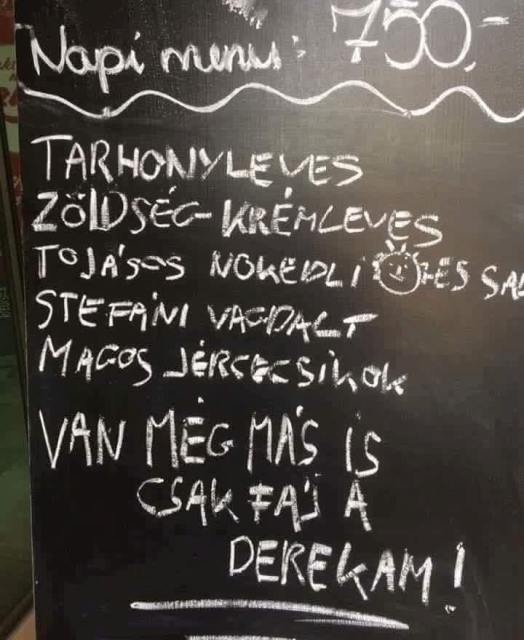 Napi menu: 750.-
TARHONYLEVES
ZÖLDSÉG-KRÉMLEVES
TOJÁSOS NOKEDLI ŐZES SAL
STEFÁNI VAGDALT
MAGOS JÉRCECSÍKOK
VAN MÉG MÁS IS
CSAK FÁJ A
DEREKAM!